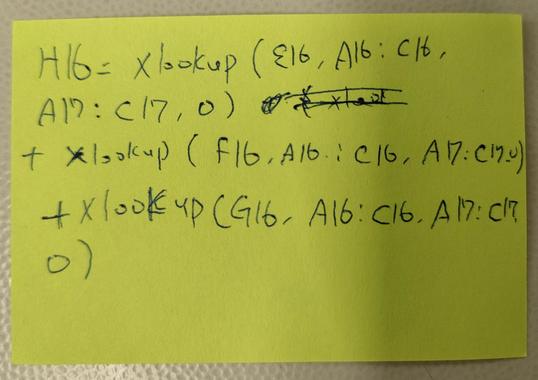 H16= xlookup (E16, A16: C16,
A17: C17, 0)
+ xlookup ( F16, A16 : C16, A17: C17,0)
+ xlooKup (G16, A16: C16, A17: C17
0)